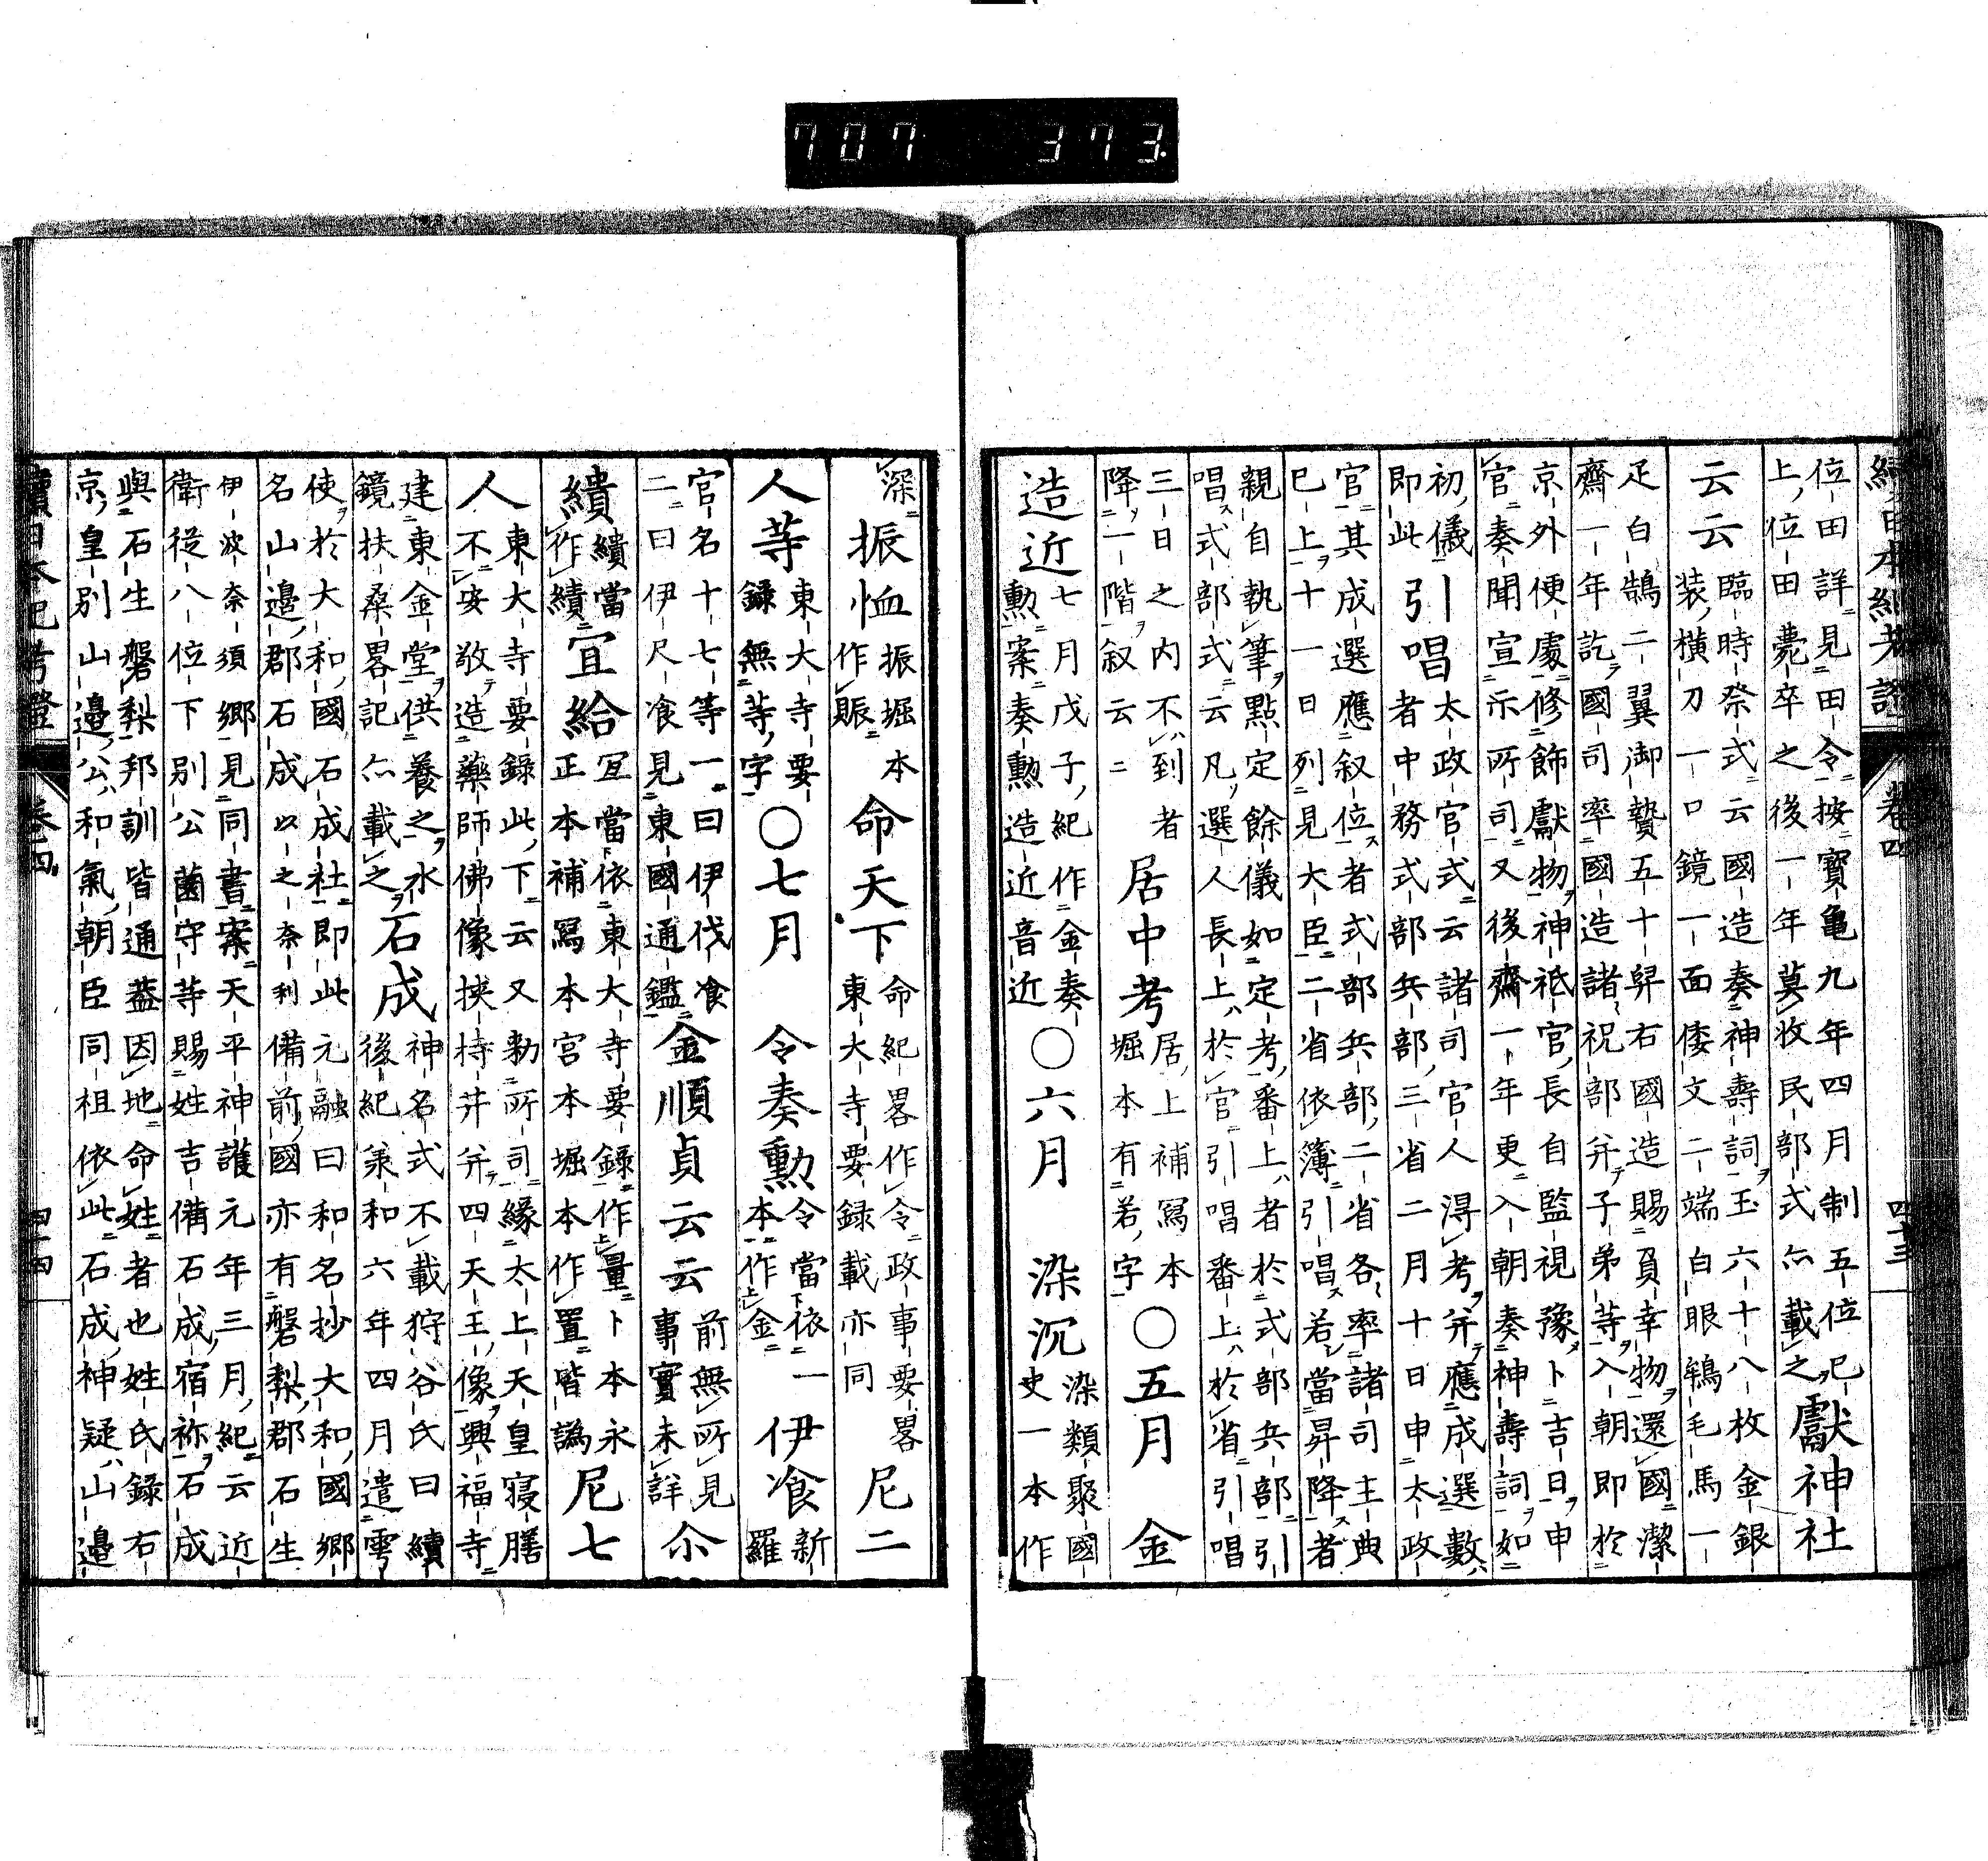 707 373.
續日本紀考證 卷四 四十三
位田詳見田令按寶龜九年四月制五位已
上位田薨卒之後一年莫收民部式亦載之獻神社
云云臨時祭式云國造奏神壽詞玉六十八枚金銀
装横刀一口鏡一面倭文二端白眼鴾毛馬一
疋白鵠二翼御贄五十舁右國造賜負幸物還國潔
齋一年訖國司率國造諸祝部并子弟等入朝即於
京外便處修飾獻物神祇官長自監視豫卜吉日申
官奏聞宣示所司又後齋一年更入朝奏神壽詞如
初儀引唱太政官式云諸司官人得考并應成選數
即此者中務式部兵部三省二月十日申太政
官其成選應叙位者式部兵部二省各率諸司主典
已上十一日列見大臣二省依簿引唱若當昇降者
親自執筆點定餘儀如定考番上者於式部兵部引
唱式部式云凡選人長上於官引唱番上於省引唱
三日之内不到者
降一階叙云二居中考居上補寫本
堀本有若字〇五月 金
造近七月戊子紀作金奏
勲案奏勲造近音近〇六月 染沉染類聚國
史一本作
深振恤振堀本
作賑命天下命紀畧作令政事要畧
東大寺要録載亦同尼二
人等東大寺要
録無等字〇七月 令奏勲令當依一
本作金伊飡新
羅
官名十七等一曰伊伐飡
二曰伊尺飡見東國通鑑金順貞云云前無所見
事實未詳尒
繢繢當
作績宜給宜當依東大寺要録作量卜本永
正本補寫本宮本堀本作置皆譌尼七
人東大寺要録此下云又勅所司緣太上天皇寢膳
不安敬造藥師佛像挾持并并四天王像興福寺
建東金堂供養之水
鏡扶桑畧記亦載之石成神名式不載狩谷氏曰續
後紀兼和六年四月遣雩
使於大和國石成社即此元融曰和名抄大和國鄉
名山邊郡石成以之奈利備前國亦有磐梨郡石生
伊波奈須鄉見同書案天平神護元年三月紀云近
衛從八位下別公薗守等賜姓吉備石成宿祢石成
與石生磐梨邦訓皆通蓋因地命姓者也姓氏録右
京皇別山邊公和氣朝臣同祖依此石成神疑山邊
續日本紀考證 卷四 四十四